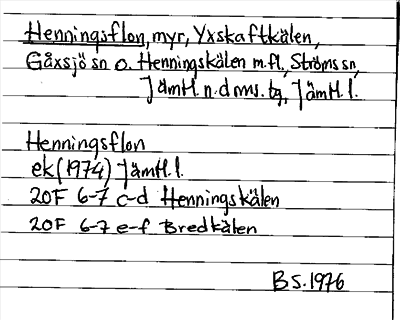 Henningsflon, myr, Yxskaftkälen,
Gåxsjö sn o. Henningskälen m.fl., Ströms sn,
Jämtl. n. dms. tg, Jämtl. l.
Henningsflon
ek (1974) Jämtl. l.
20F 6-7 c-d Henningskälen
20F 6-7 e-f Bredkälen
BS. 1976